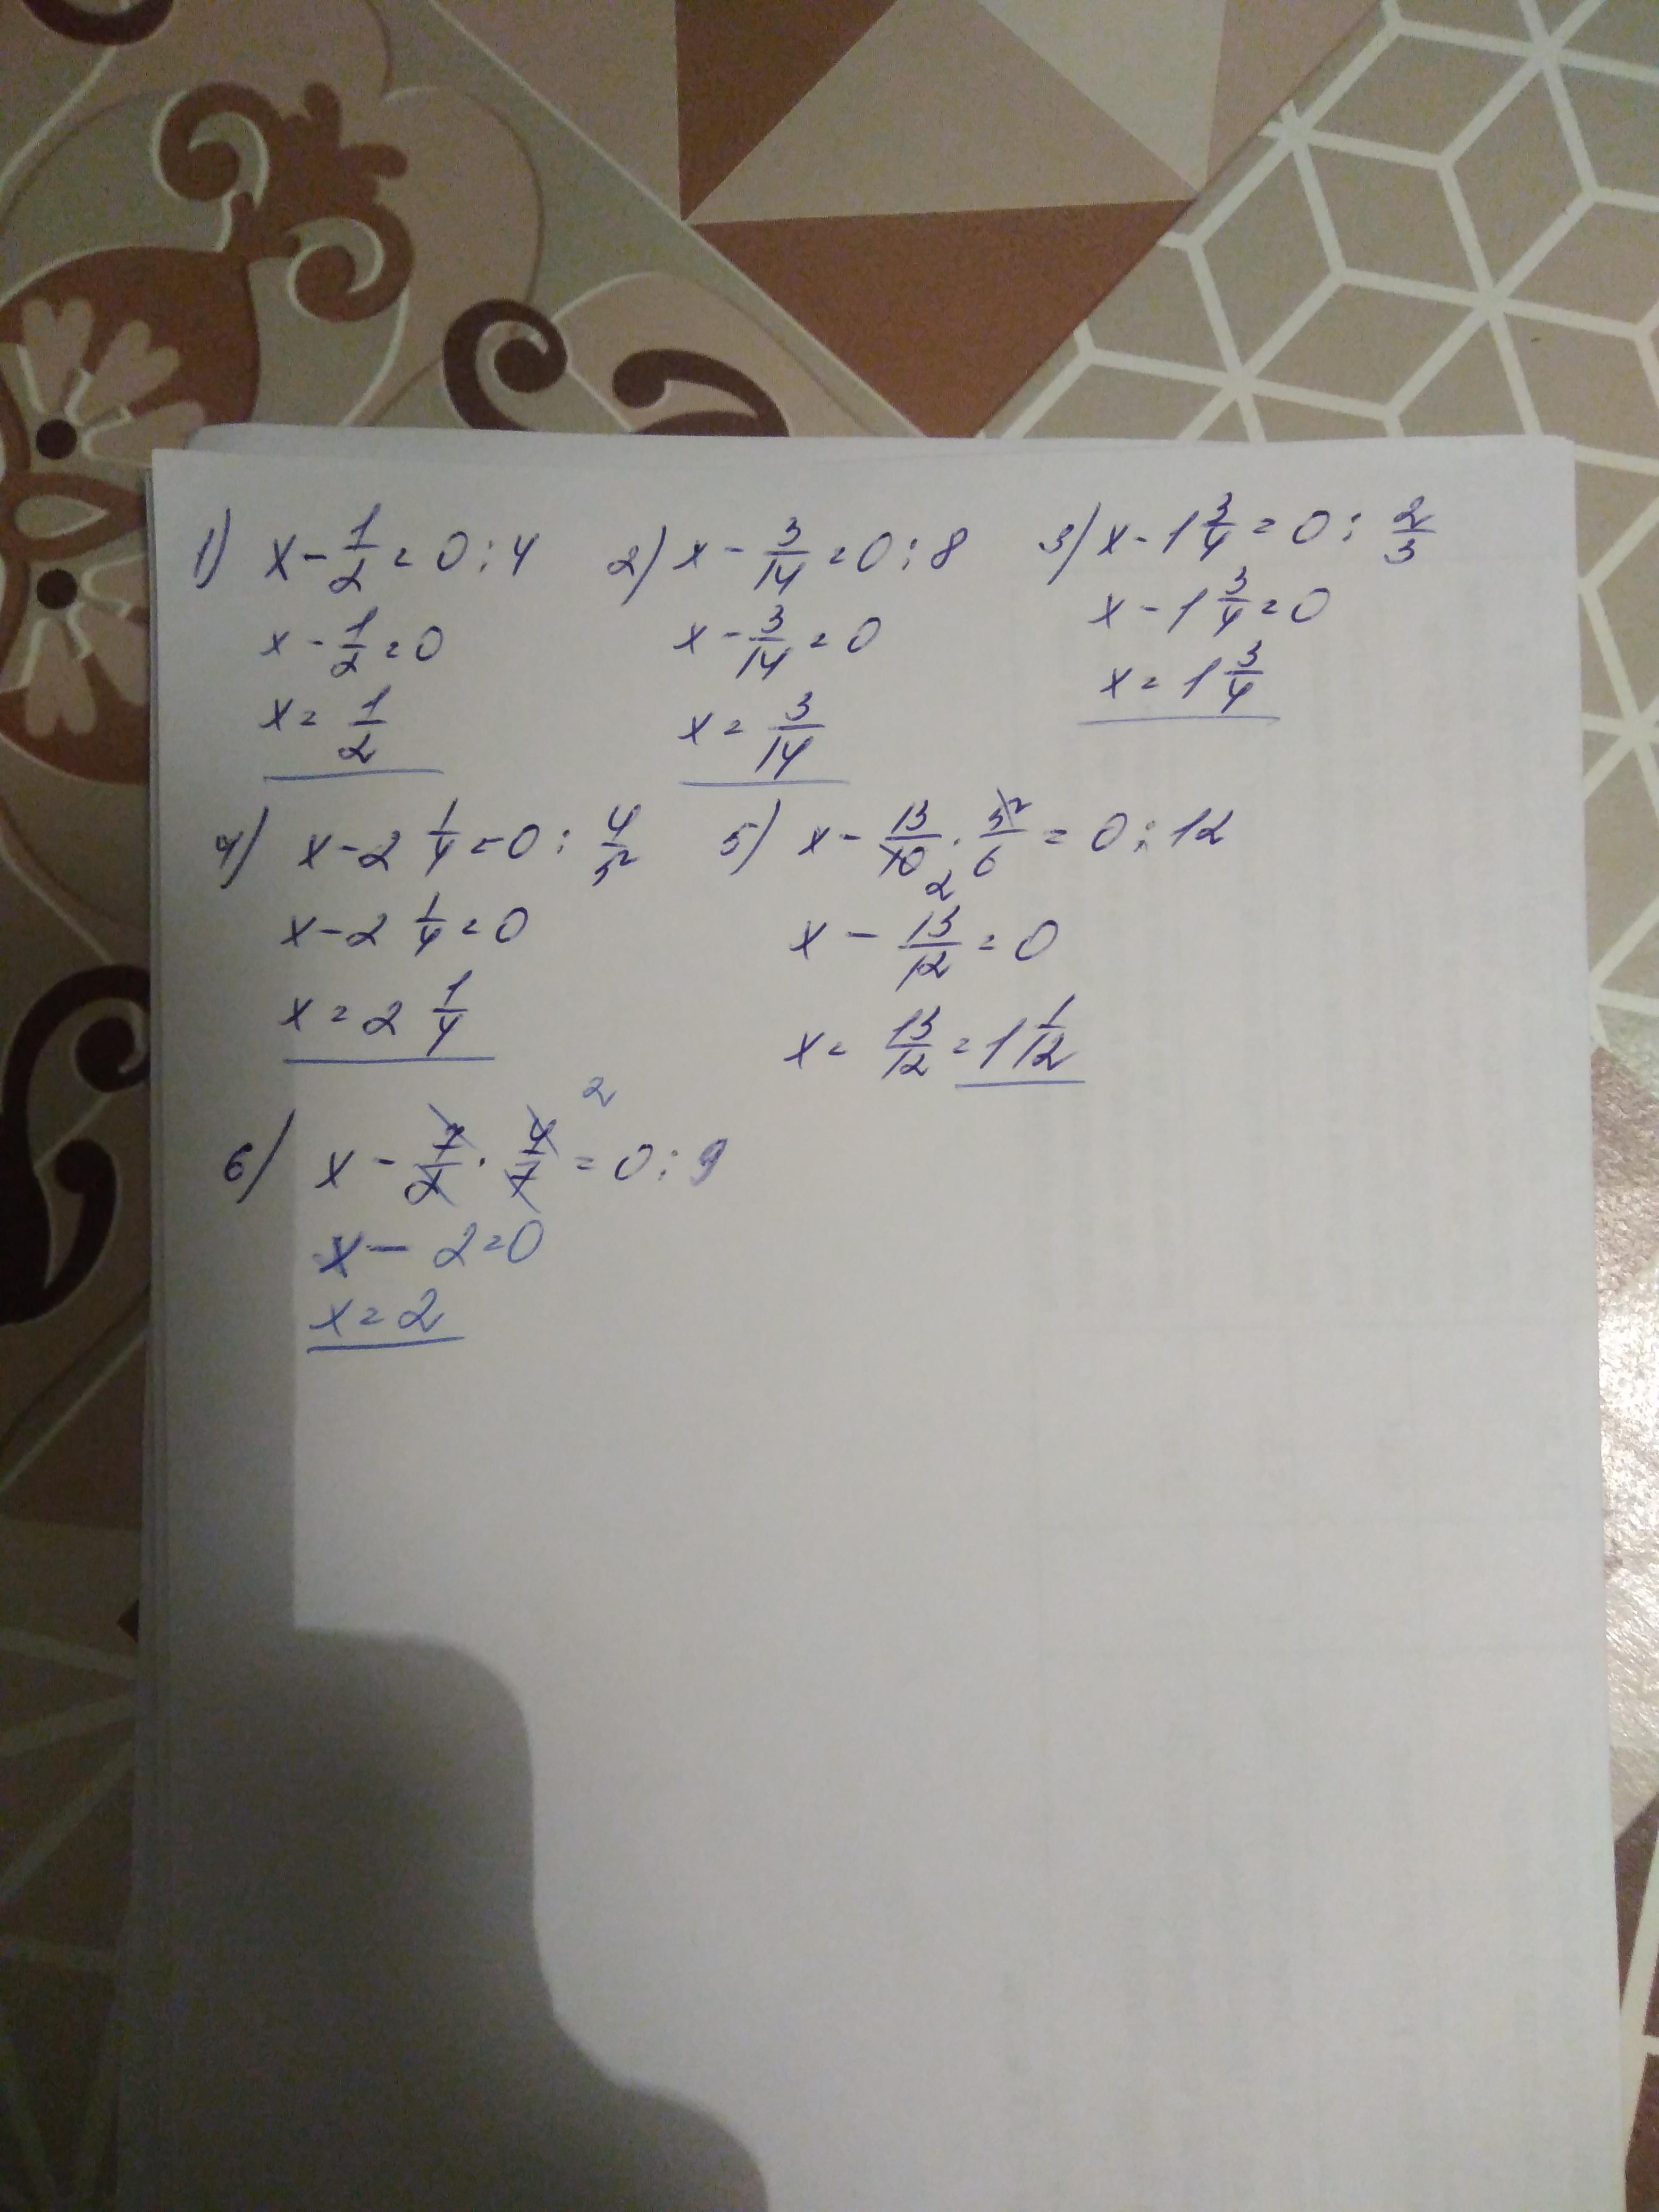 1) x - 1/2 = 0 : 4
x - 1/2 = 0
x = 1/2
2) x - 3/14 = 0 : 8
x - 3/14 = 0
x = 3/14
3) x - 1 3/4 = 0 : 2/3
x - 1 3/4 = 0
x = 1 3/4
4) x - 2 1/4 = 0 : 4/5
x - 2 1/4 = 0
x = 2 1/4
5) x - 13/10 · 5/6 = 0 : 12
2
x - 13/12 = 0
x = 13/12 = 1 1/12
2
6) x - 7/2 · 4/7 = 0 : 9
x - 2 = 0
x = 2